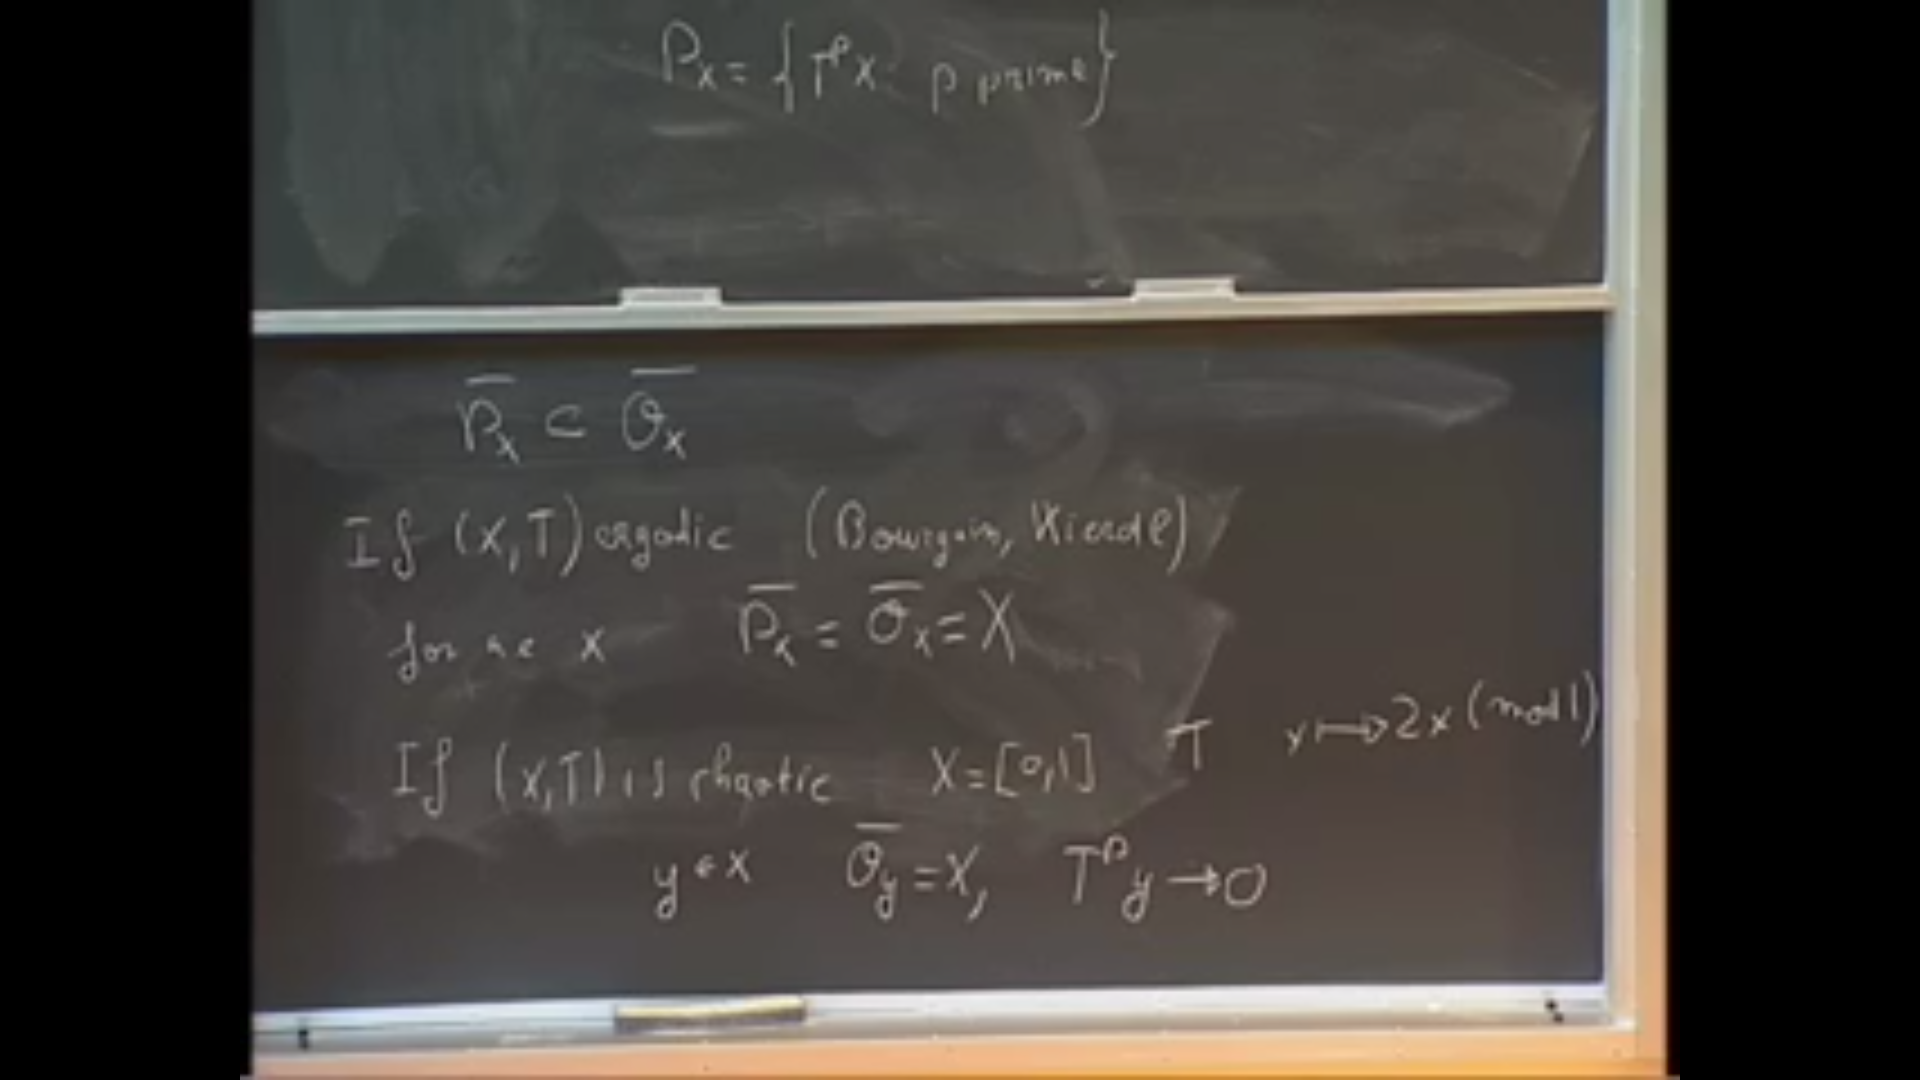 P_x = {T^p x p prime}
\overline{P_x} ⊂ \overline{O_x}
If (X,T) ergodic (Bourgain, Wierdl)
for ae x \overline{P_x} = \overline{O_x} = X
If (X,T) is chaotic X=[0,1] T x ↦ 2x (mod 1)
y ∈ X \overline{O_y} = X, T^p y → 0